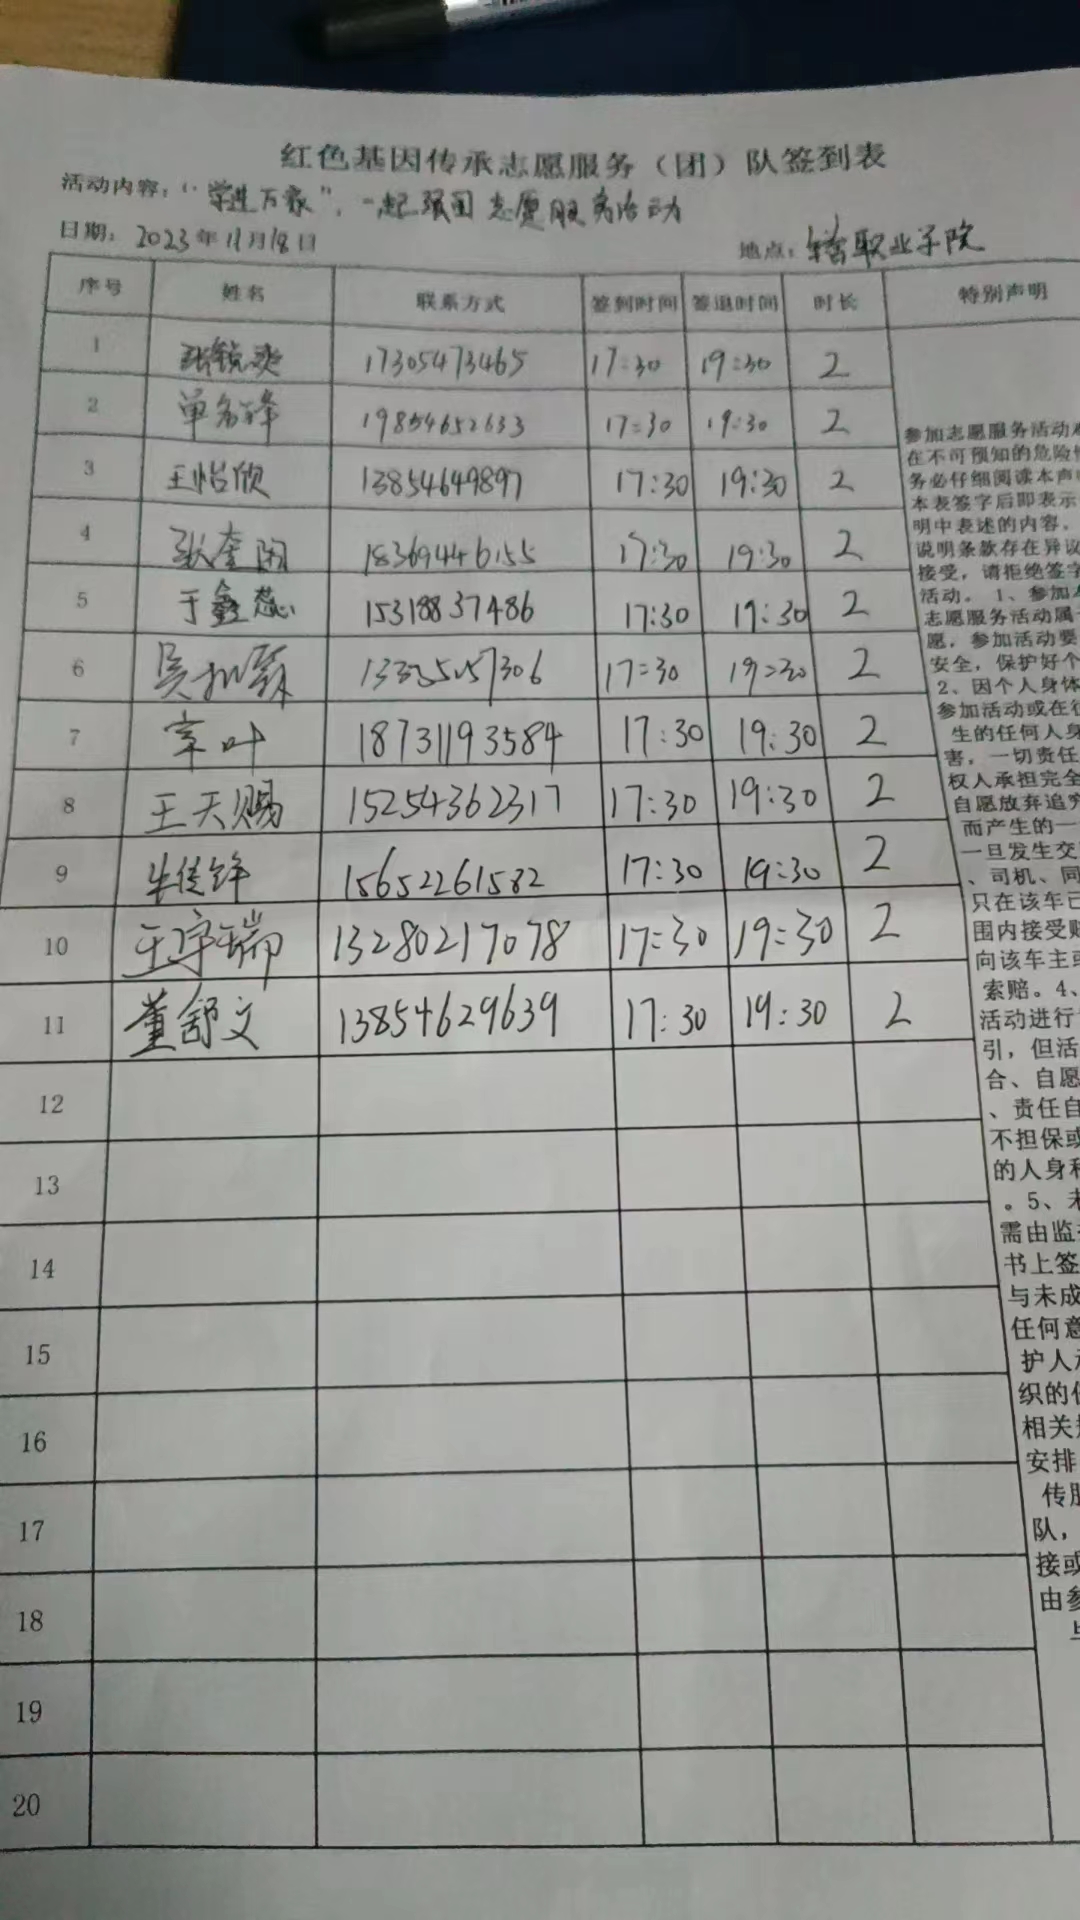 红色基因传承志愿服务（团）队签到表
活动内容：“学进万家”，一起强国志愿服务活动
日期：2023年11月18日 地点：职业学院
序号 姓名 联系方式 签到时间 签退时间 时长 特别声明
1 张锐爽 17305473465 17:30 19:30 2
2 单 19854652633 17:30 19:30 2
3 王怡欣 13854649897 17:30 19:30 2
4 18369446155 17:30 19:30 2
5 于鑫蕊 15318837486 17:30 19:30 2
6 吴 17:30 19:30 2
7 宰叶 18731193584 17:30 19:30 2
8 王天赐 15254362317 17:30 19:30 2
9 15652261582 17:30 19:30 2
10 王宇瑞 13280217078 17:30 19:30 2
11 董舒文 13854629639 17:30 19:30 2
12
13
14
15
16
17
18
19
20
参加志愿服务活动
在不可预知的危险
务必仔细阅读本声
本表签字后即表示
明中表述的内容，
说明条款存在异议
接受，请拒绝签字
活动。1、参加
志愿服务活动属
愿，参加活动要
安全，保护好个
2、因个人身体
参加活动或在往
生的任何人身
害，一切责任
权人承担完全
自愿放弃追究
而产生的一
一旦发生交
、司机、同
只在该车已
围内接受赔
向该车主或
索赔。4、
活动进行
引，但活
合、自愿
、责任自
不担保或
的人身和
。5、未
需由监
书上签
与未成
任何意
护人承
织的任
相关
安排
传服
队，
接或
由参